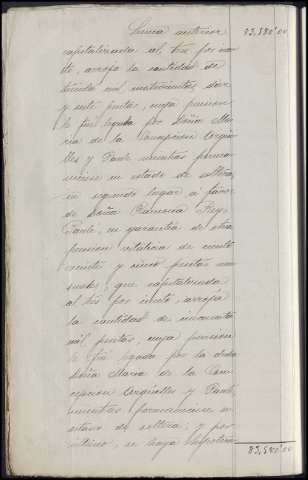 Suma anterior 83,580'00
capitalizada al tres por cien
to, arroja la cantidad de
treinta mil
y siete pesetas, cuya pension
le fué legada por Doña Ma
ria de la Concepcion Argüe
lles y Ponte mientras perma
neciese en estado de soltera;
en segundo lugar á favor
de Doña Ramona Rey
Ponte, en garantia de otra
pension vitalicia de ciento
veinte y cinco pesetas men
suales, que capitalizada
al tres por ciento, arroja
la cantidad de cincuenta
mil pesetas, cuya pension
le fué legada por la dicha
Doña Maria de la Con
cepcion Argüelles y Ponte,
mientras permaneciese en
estado de soltera; y por
último, en
83,580'00